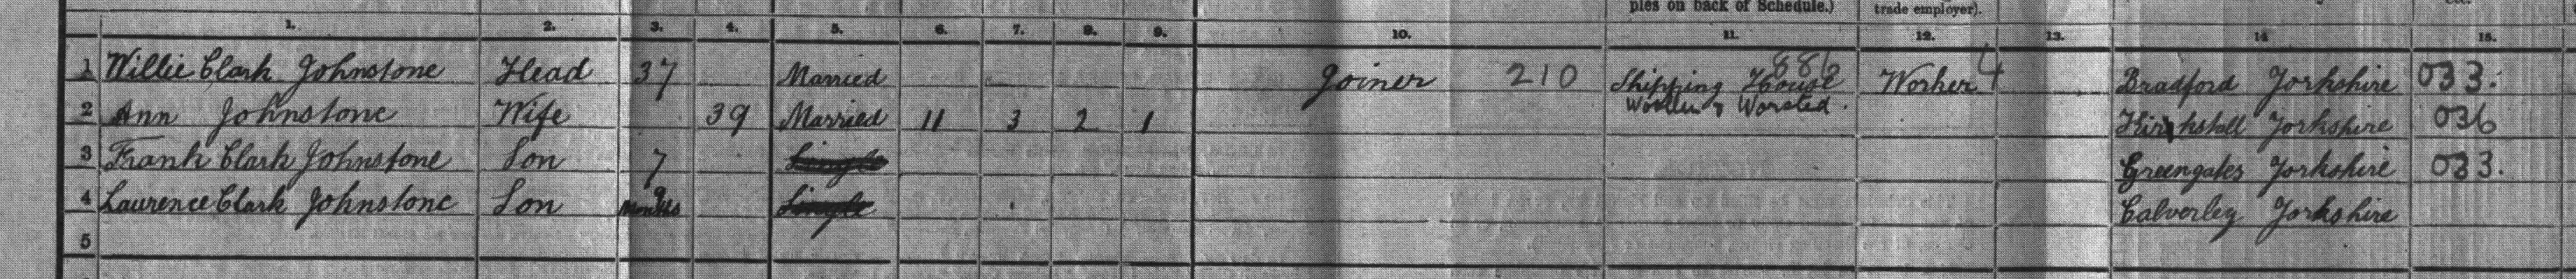 ples on back of Schedule.) trade employer).
1. 2. 3. 4. 5. 6. 7. 8. 9. 10. 11. 12. 13. 14 15.
1 Willie Clark Johnstone Head 37 Married Joiner 210 Shipping House 886 Worker 4 Bradford Yorkshire 033.
Woollen & Worsted.
2 Ann Johnstone Wife 39 Married 11 3 2 1 Kirkstall Yorkshire 036
3 Frank Clark Johnstone Son 7 Single Greengates Yorkshire 033.
4 Laurence Clark Johnstone Son 9 months Single Calverley Yorkshire
5